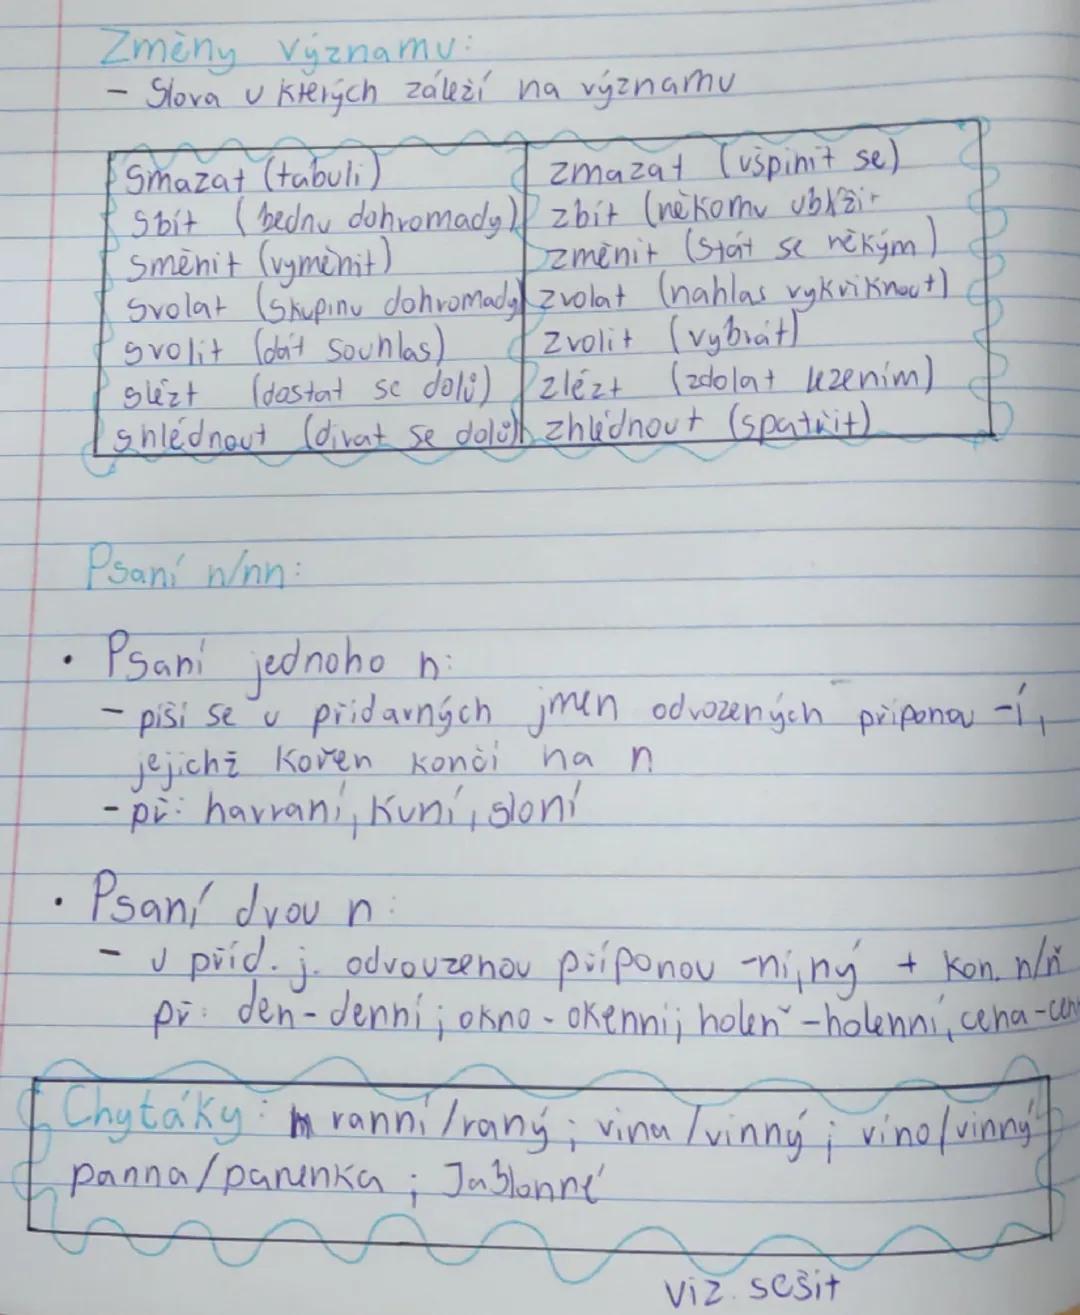 Změny významu:
- Slova u kterých záleží na významu
smazat (tabuli) zmazat (ušpinit se)
sbít (bednu dohromady) zbít (někomu ublížit
směnit (vyměnit) změnit (stát se někým)
svolat (skupinu dohromady) zvolat (nahlas vykřiknout)
svolit (dát souhlas) zvolit (vybrát)
slézt (dostat se dolů) zlézt (zdolat lezením)
shlédnout (dívat se dolů) zhlédnout (spatřit)
Psaní n/nn:
• Psaní jednoho n:
- píší se u přídavných jmen odvozených příponou -í,
jejichž kořen končí na n
- př: havraní, kuní, sloní
• Psaní dvou n:
- u příd. j. odvouzenou příponou -ní, ný + kon. n/ň
př: den - denní; okno - okenni; holeň - holenní, cena -
Chytáky: ranní/raný; vina/vinný; víno/vinný
panna/panenka; Jablonné
viz. sešit